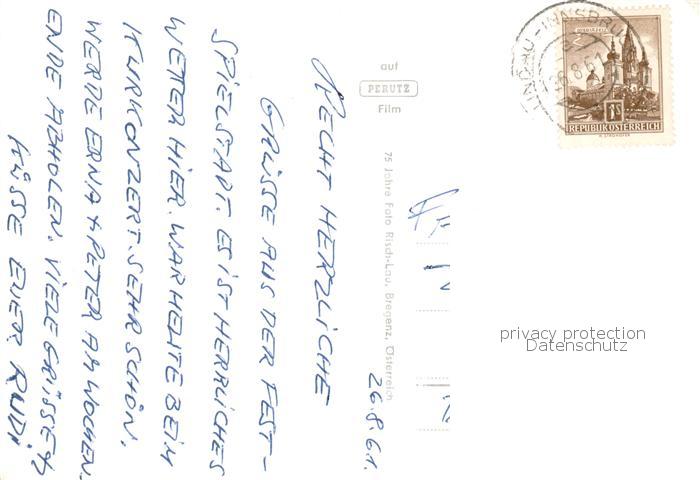 RECHT HERZLICHE
GRÜSSE AUS DER FEST-
SPIELSTADT. ES IST HERRLICHES
WETTER HIER. WAR HEUTE BEIM
KURKONZERT. SEHR SCHÖN.
WERDE ERNA + PETER AM WOCHEN-
ENDE ABHOLEN. VIELE GRÜSSE +
KÜSSE EUER RUDI
26.8.61.
auf
PERUTZ
Film
75 Jahre Foto Risch-Lau, Bregenz, Österreich
LINDAU-INNSBRU
26.8.61
1S
REPUBLIK ÖSTERREICH
privacy protection
Datenschutz